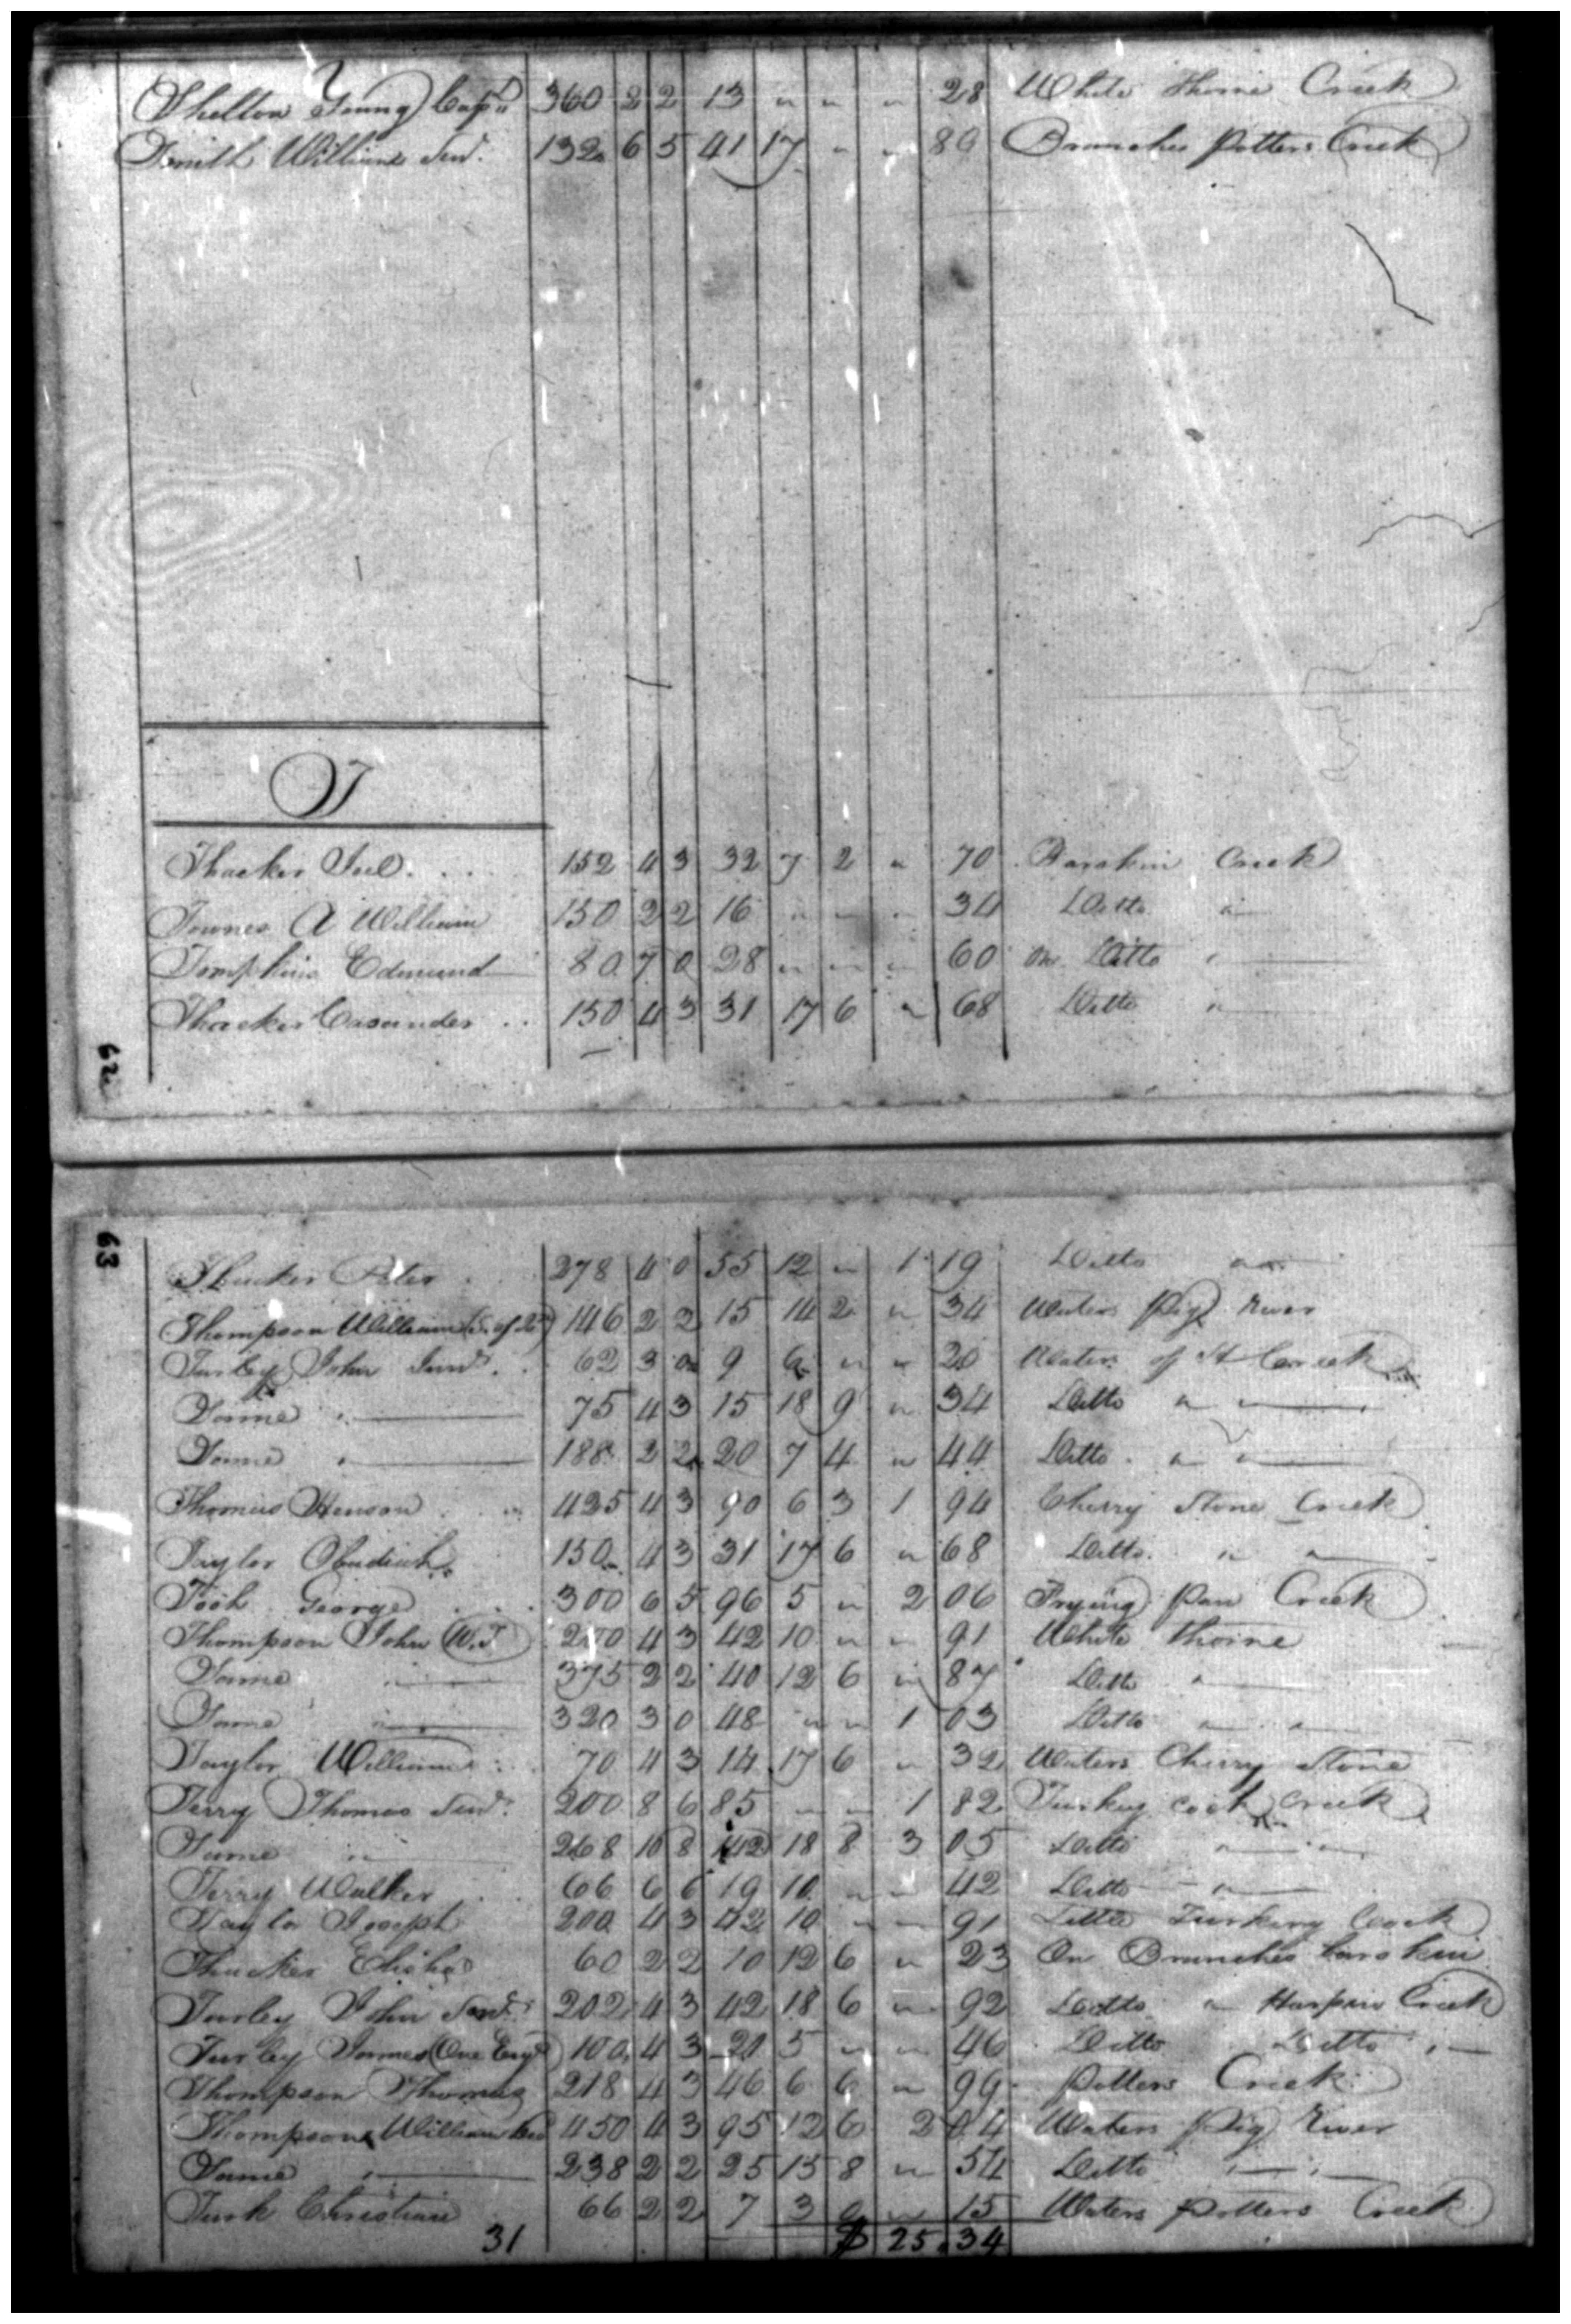 Shelton Young Capt. 360 2 2 13 " " " 28 White Thorne Creek
Smith William Senr. 132 6 5 41 17 " " 89 Branches Potters Creek
T
Thacker Joel 152 4 3 32 7 2 " 70 Banskin Creek
Townes A William 150 2 2 16 " " " 34 Ditto "
Tompkins Edmund 80 7 0 28 " " " 60 on Ditto "
Thacker 150 4 3 31 17 6 " 68 Ditto "
62
63
Thacker Peter 278 4 0 55 12 " 1 19 Ditto "
Thompson William 146 2 2 15 14 2 " 34 Waters Pig River
Turley John Junr. 62 3 0 9 6 " " 20 Waters of Creek
Same " 75 4 3 15 18 9 " 34 Ditto " "
Same " 188 2 2 20 7 4 " 44 Ditto " "
Thomas Henson 425 4 3 90 6 3 1 94 Cherry Stone Creek
Taylor Obadiah 150 4 3 31 17 6 " 68 Ditto " "
Tosh George 300 6 5 96 5 " 2 06 Frying Pan Creek
Thompson John W.T 200 4 3 42 10 " " 91 White thorne
Same " 375 2 2 40 12 6 " 87 Ditto "
Same " 320 3 0 48 " " 1 03 Ditto " "
Taylor William 70 4 3 14 17 6 " 32 Waters Cherry Stone
Terry Thomas Senr. 200 8 6 85 " " 1 82 Turkey Cock Creek
Same " 268 10 8 142 18 8 3 05 Ditto " "
Terry Walker 66 6 6 19 10 " " 42 Ditto "
Taylor Joseph 200 4 3 42 10 " " 91 Little Turkey Cock
Thacker Elisha 60 2 2 10 12 6 " 23 On Branches Banskin
Turley John Senr. 202 4 3 42 18 6 " 92 Ditto " Harpin Creek
Turley James 100 4 3 21 5 " " 46 Ditto Ditto "
Thompson Thomas 218 4 3 46 6 6 " 99 Potters Creek
Thompson William 450 4 3 95 12 6 2 04 Waters Pig River
Same " 238 2 2 25 15 8 " 54 Ditto " "
Turk Christian 66 2 2 7 3 0 " 15 Waters Potters Creek
31 $ 25.34